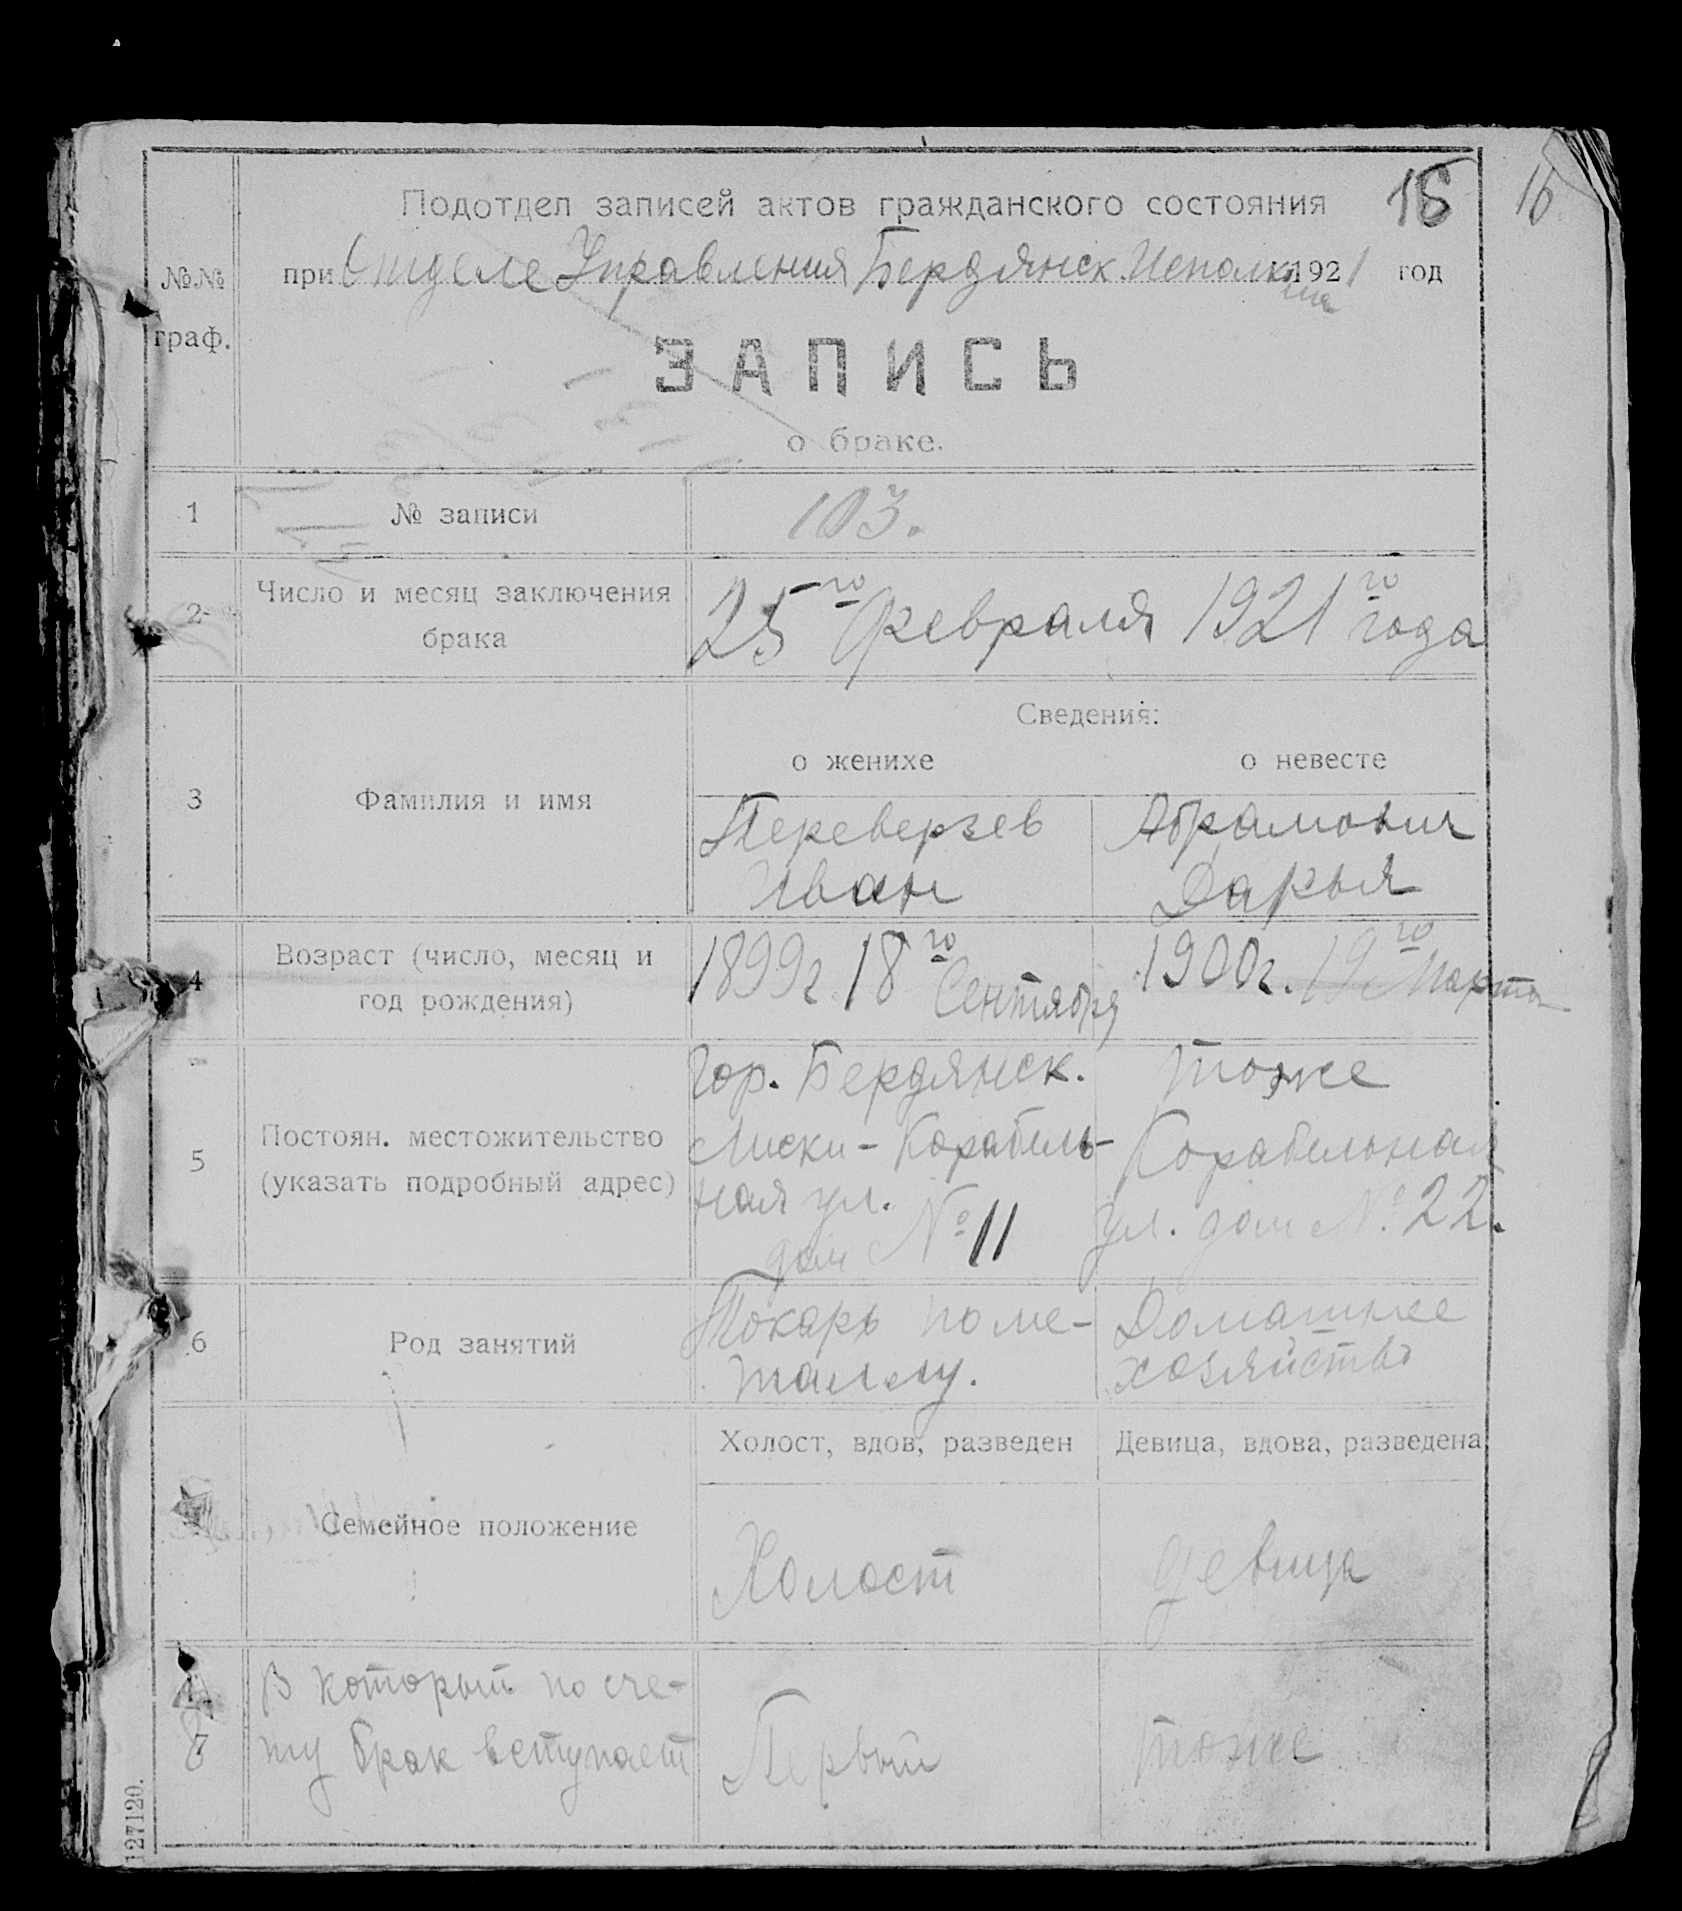 Подотдел записей актов гражданского состояния 16 16
№№ граф.
при Отделе Управления Бердянск. Исполкома 1921 год
ЗАПИСЬ
о браке.
1 № записи 103.
2 Число и месяц заключения
брака
25го Февраля 1921го года
Сведения:
о женихе о невесте
3 Фамилия и имя
Переверзев Абрамович
Иван Дарья
4 Возраст (число, месяц и
год рождения)
1899г. 18го Сентября
1900г. 19го Марта
5 Постоян. местожительство
(указать подробный адрес)
Гор. Бердянск.
Лиски - Корабель-
ная ул.
дом № 11
тоже
Корабельная
ул. дом № 22.
6 Род занятий
Токарь по ме-
таллу.
Домашнее
хозяйство
Холост, вдов, разведен Девица, вдова, разведена
Семейное положение
Холост девица
7 В который по сче-
ту брак вступает
Первый тоже
127120.